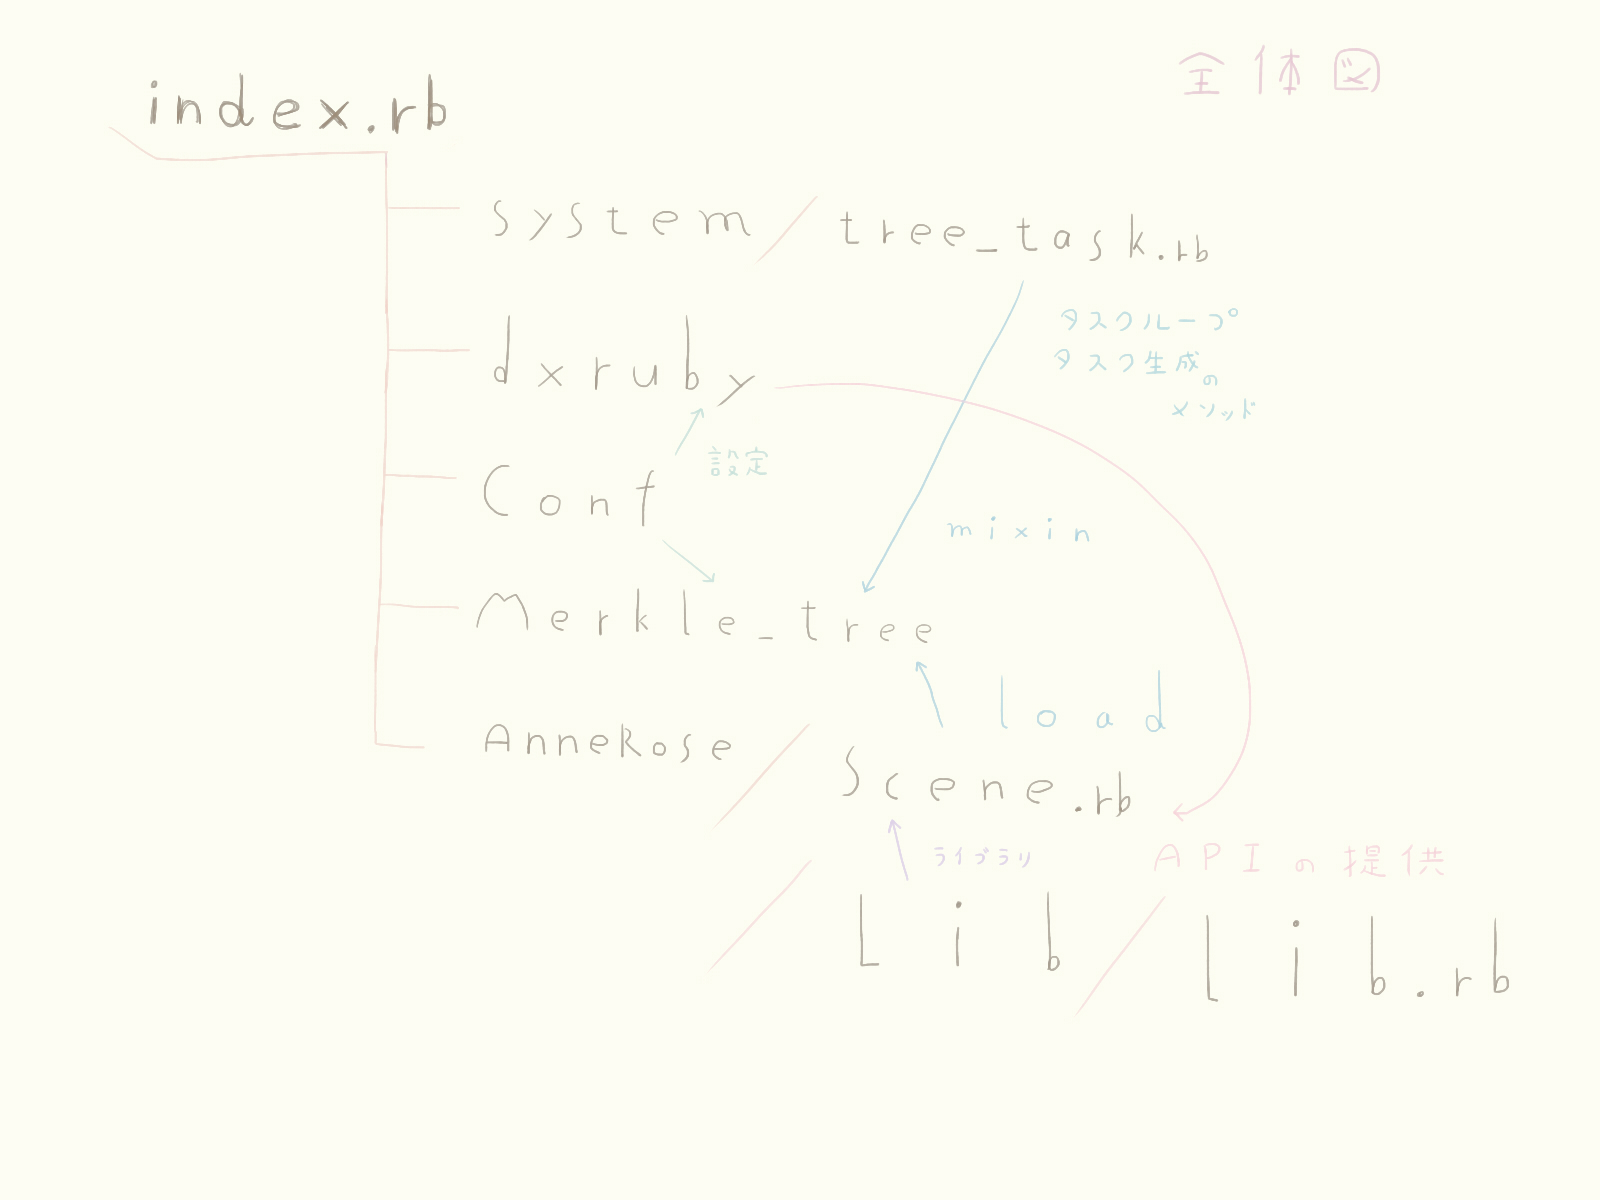 全体図
index.rb
system / tree_task.rb
タスクループ
タスク生成の
メソッド
dxruby
設定
Conf
mixin
Merkle_tree
load
AnneRose / Scene.rb
ライブラリ
APIの提供
/ Lib / lib.rb